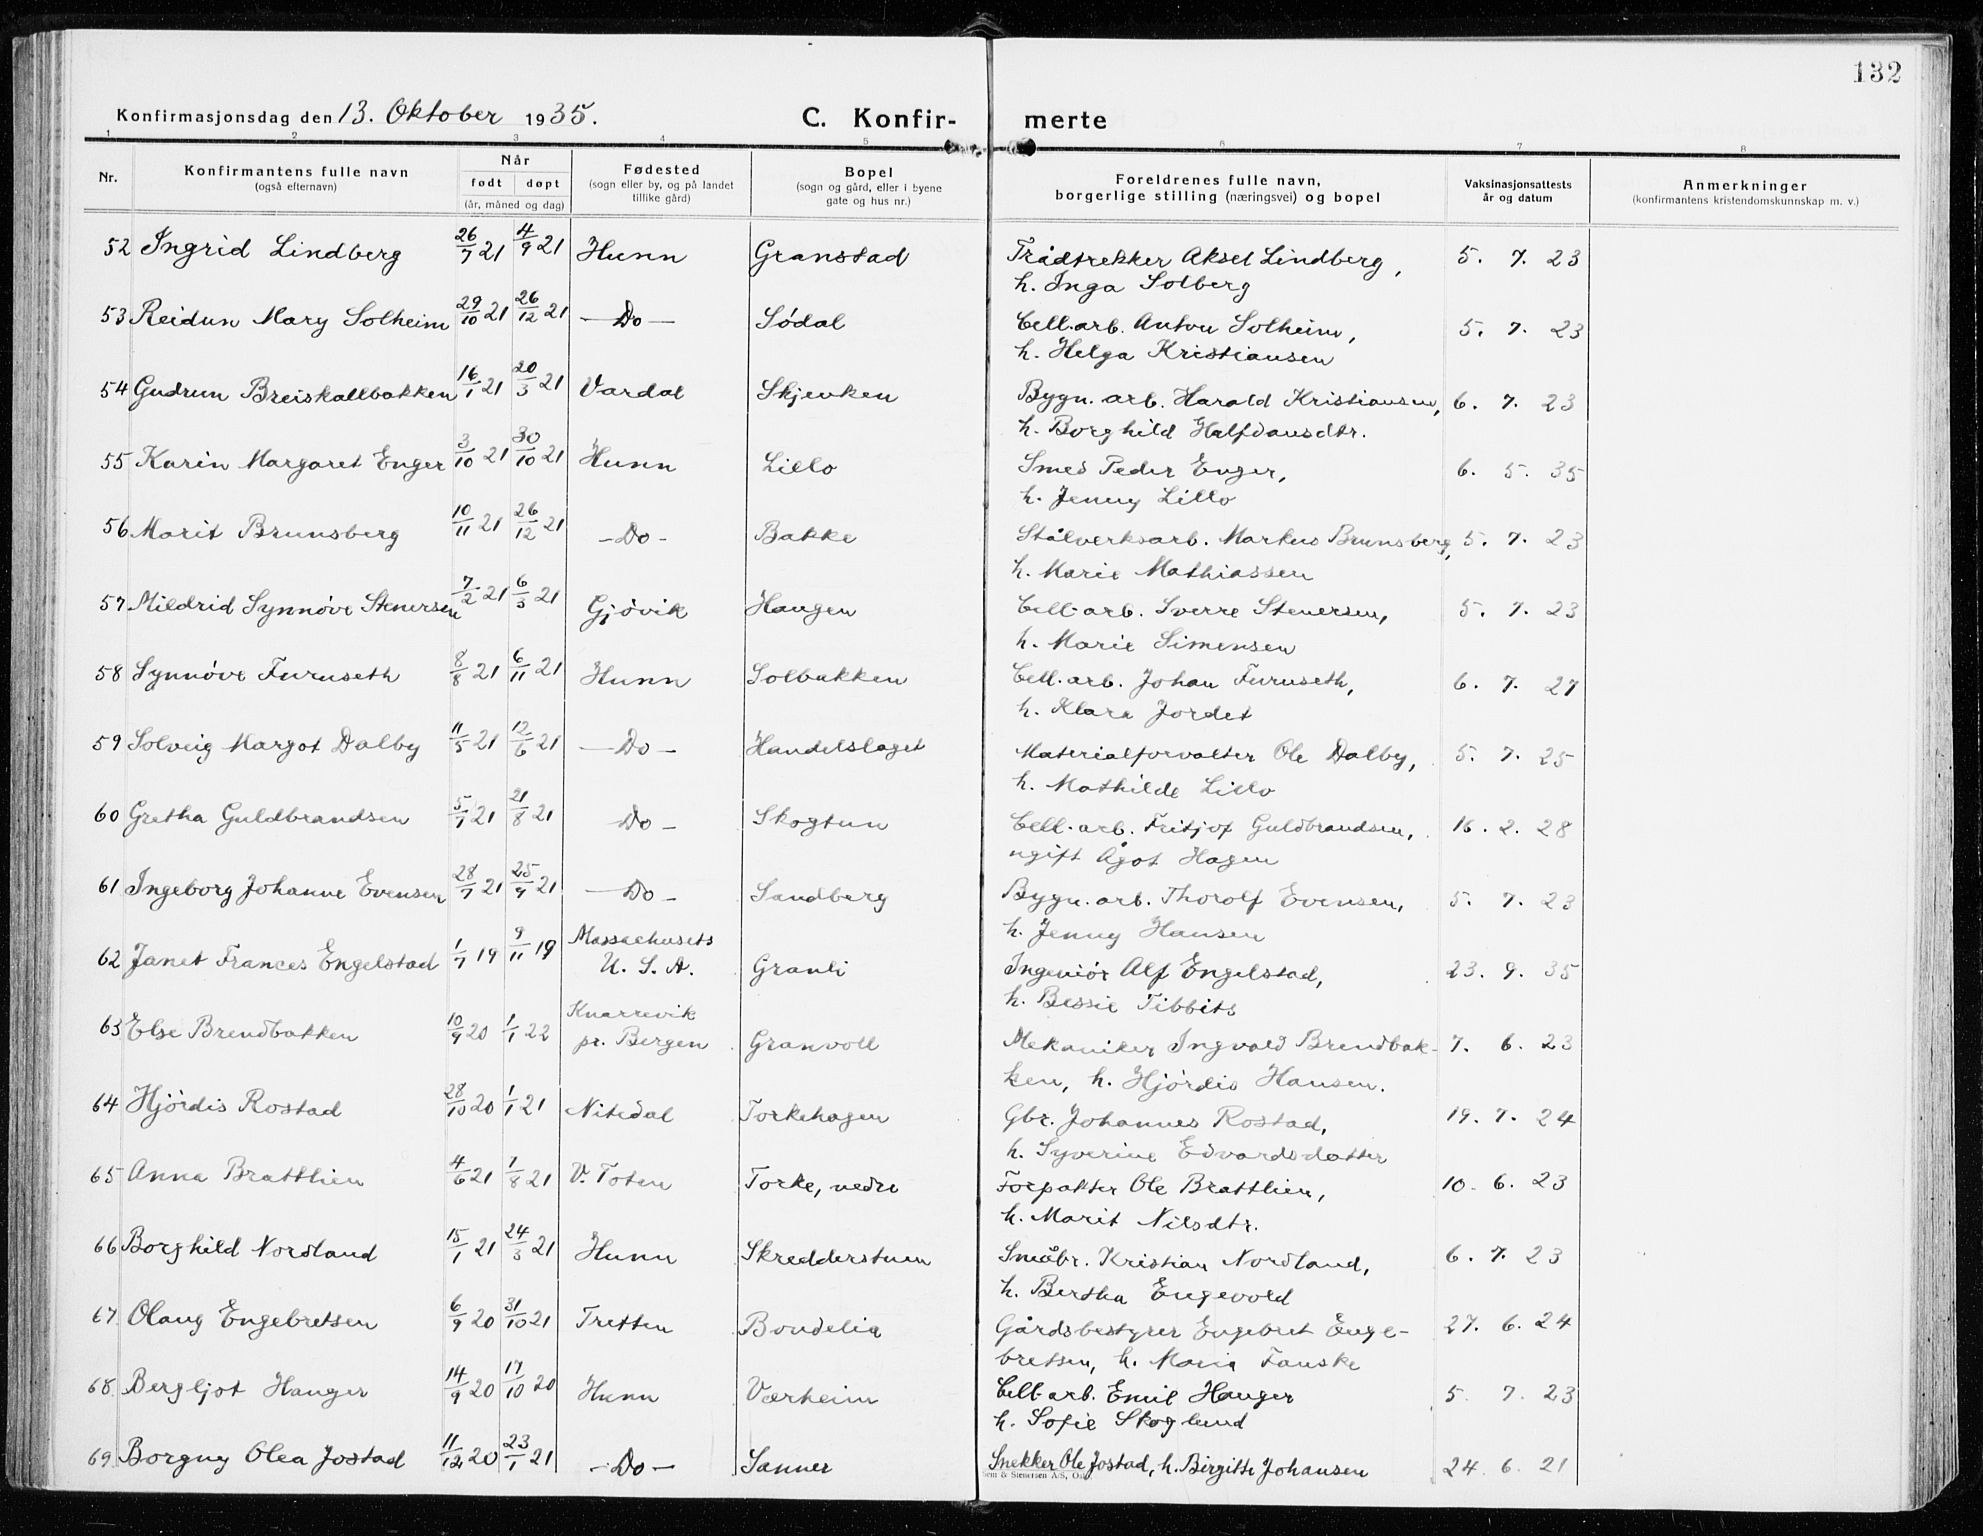 132
Konfirmasjonsdag den 13. Oktober 1935. C. Konfir- merte
1 2 3 4 5 6 7 8
Nr. Konfirmantens fulle navn (også efternavn) Når født døpt (år, måned og dag) Fødested (sogn eller by, og på landet tillike gård) Bopel (sogn og gård, eller i byene gate og hus nr.) Foreldrenes fulle navn, borgerlige stilling (næringsvei) og bopel Vaksinasjonsattests år og datum Anmerkninger (konfirmantens kristendomskunnskap m. v.)
52 Ingrid Lindberg 26/7 21 4/9 21 Hunn Granstad Trådtrekker Aksel Lindberg, 5. 7. 23
h. Inga Solberg
53 Reidun Mary Solheim 29/10 21 26/12 21 — Do — Sødal Cell.arb. Anton Solheim, 5. 7. 23
h. Helga Kristiansen
54 Gudrun Breiskallbakken 16/1 21 20/3 21 Vardal Skjenken Bygn. arb. Harald Kristiansen, 6. 7. 23
h. Borghild Halfdansdtr.
55 Karin Margaret Enger 3/10 21 30/10 21 Hunn Lillo Smed Peder Enger, 6. 5. 35
h. Jenny Lillo
56 Marit Brunsberg 10/11 21 26/12 21 - Do - Bakke Stålverksarb. Markus Brunsberg, 5. 7. 23
h. Marie Mathiassen
57 Mildrid Synnøve Stenersen 7/2 21 6/3 21 Gjøvik Haugen Cell.arb. Sverre Stenersen, 5. 7. 23
h. Marie Simensen
58 Synnøve Furuseth 8/8 21 6/11 21 Hunn Solbakken Cell.arb. Johan Furuseth, 6. 7. 27
h. Klara Jordet
59 Solveig Margot Dalby 11/5 21 12/6 21 — Do — Handelslaget Materialforvalter Ole Dalby, 5. 7. 25
h. Mathilde Lillo
60 Gretha Guldbrandsen 5/7 21 21/8 21 — Do — Skogtun Cell.arb. Fritjof Guldbrandsen, 16. 2. 28
ugift Ågot Hagen
61 Ingeborg Johanne Evensen 28/7 21 25/9 21 — Do — Sandberg Bygn. arb. Thorolf Evensen, 5. 7. 23
h. Jenny Hansen
62 Janet Frances Engelstad 1/7 19 9/11 19 Massachusets U. S. A. Granli Ingeniør Alf Engelstad, 23. 9. 35
h. Bessie Tibbits
63 Else Brendbakken 10/9 20 1/1 22 Knarrevik pr. Bergen Granvoll Mekaniker Ingvald Brendbak- 7. 6. 23
ken, h. Hjørdis Hansen.
64 Hjørdis Rostad 28/10 20 1/1 21 Nitedal Torkehagen Gbr. Johannes Rostad, 19. 7. 24
h. Syverine Edvardsdatter
65 Anna Brattlien 4/6 21 7/8 21 V. Toten Torke, nedre Forpakter Ole Brattlien, 10. 6. 23
h. Marit Nilsdtr.
66 Borghild Nordland 15/1 21 24/3 21 Hunn Skredderstuen Småbr. Kristian Nordland, 6. 7. 23
h. Bertha Engevold
67 Olaug Engebretsen 6/9 20 31/10 21 Tretten Bondelia Gårdsbestyrer Engebret Enge- 27. 6. 24
bretsen, h. Maria Fauske
68 Bergljot Hanger 14/9 20 17/10 20 Hunn Værheim Cell.arb. Emil Hanger 5. 7. 23
h. Sofie Skoglund
69 Borgny Olea Jostad 11/12 20 23/1 21 — Do — Sanner Snekker Ole Jostad, h. Birgitte Johansen 24. 6. 21
Sem & Stenersen A/S, Oslo